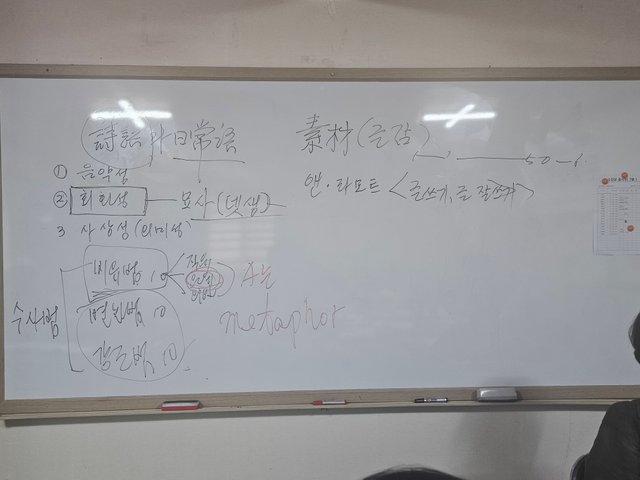 詩語와 日常語
① 음악성
② 회화성 — 묘사(뎃생)
3 사상성(의미성)
수사법
비유법 10
직유
은유
변화법 10
강조법 10
A는
metaphor
素材(글감)
1 50 - 1
앤·라모트 <글쓰기, 글 잘쓰기>